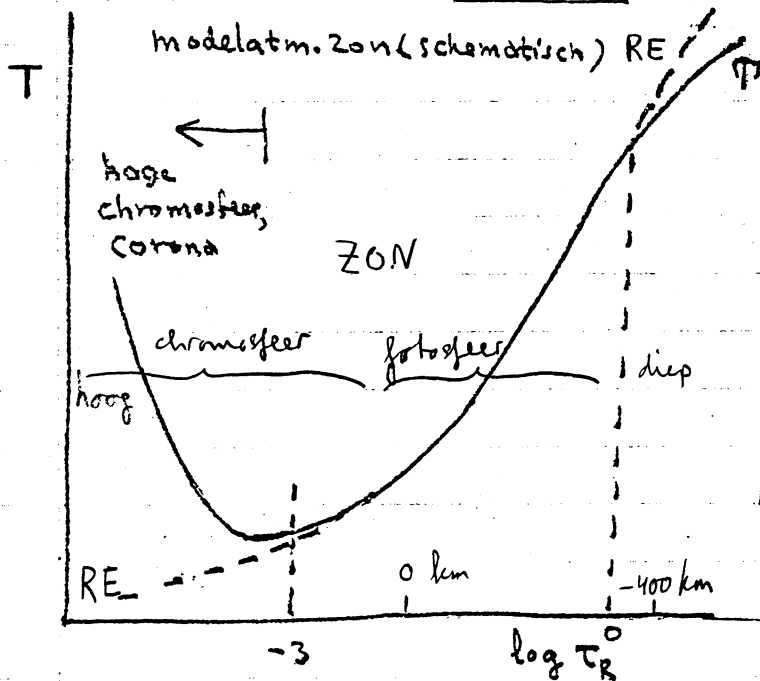 modelatm. zon (schematisch) RE
T
T
hoge
chromosfeer,
corona
ZON
chromosfeer
fotosfeer
hoog
diep
RE
0 km
-400 km
-3
log τR
0